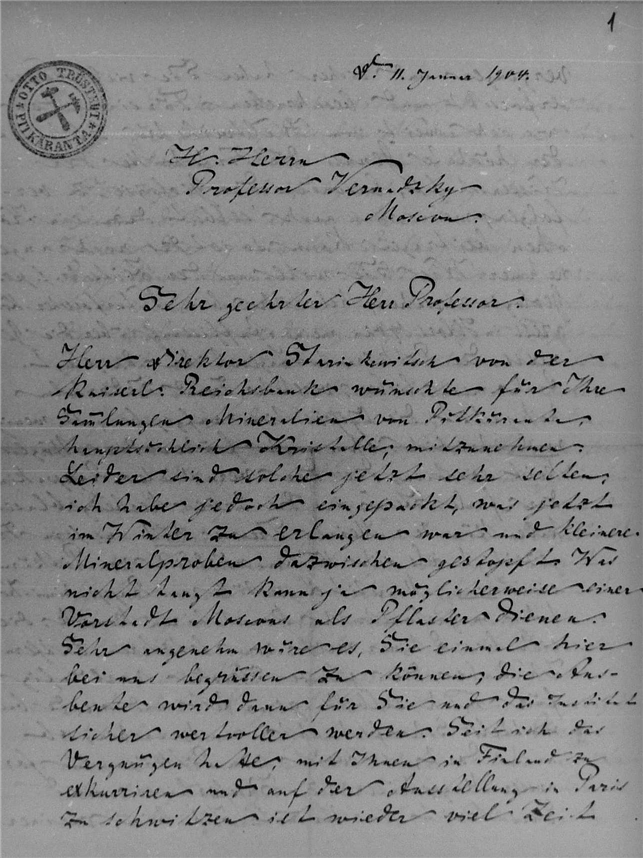 1
OTTO TRÜSTEDT
PITKÄRANTA
d. 11. Januar 1904.
H. Herrn
Professor Vernadsky
Moscou.
Sehr geehrter Herr Professor.
Herr Direktor Starinkewitsch von der
Kaiserl. Reichsbank wünschte für Ihre
Samlungen Mineralien von Pitkäranta,
hauptsächlich Kristalle, mitzunehmen.
Leider sind solche jetzt sehr selten,
ich habe jedoch eingepackt, was jetzt
im Winter zu erlangen war und kleinere
Mineralproben dazwischen gestopft. Was
nicht taugt kann ja möglicherweise einer
Vorstadt Moscous als Pflaster dienen.
Sehr angenehm wäre es, Sie einmal hier
bei uns begrüssen zu können, die Aus-
beute wird dann für Sie und das Institut
sicher wertvoller werden. Seit ich das
Vergnügen hatte, mit Ihnen in Finland zu
exkurriren und auf der Ausstellung in Paris
zu schwitzen ist wieder viel Zeit